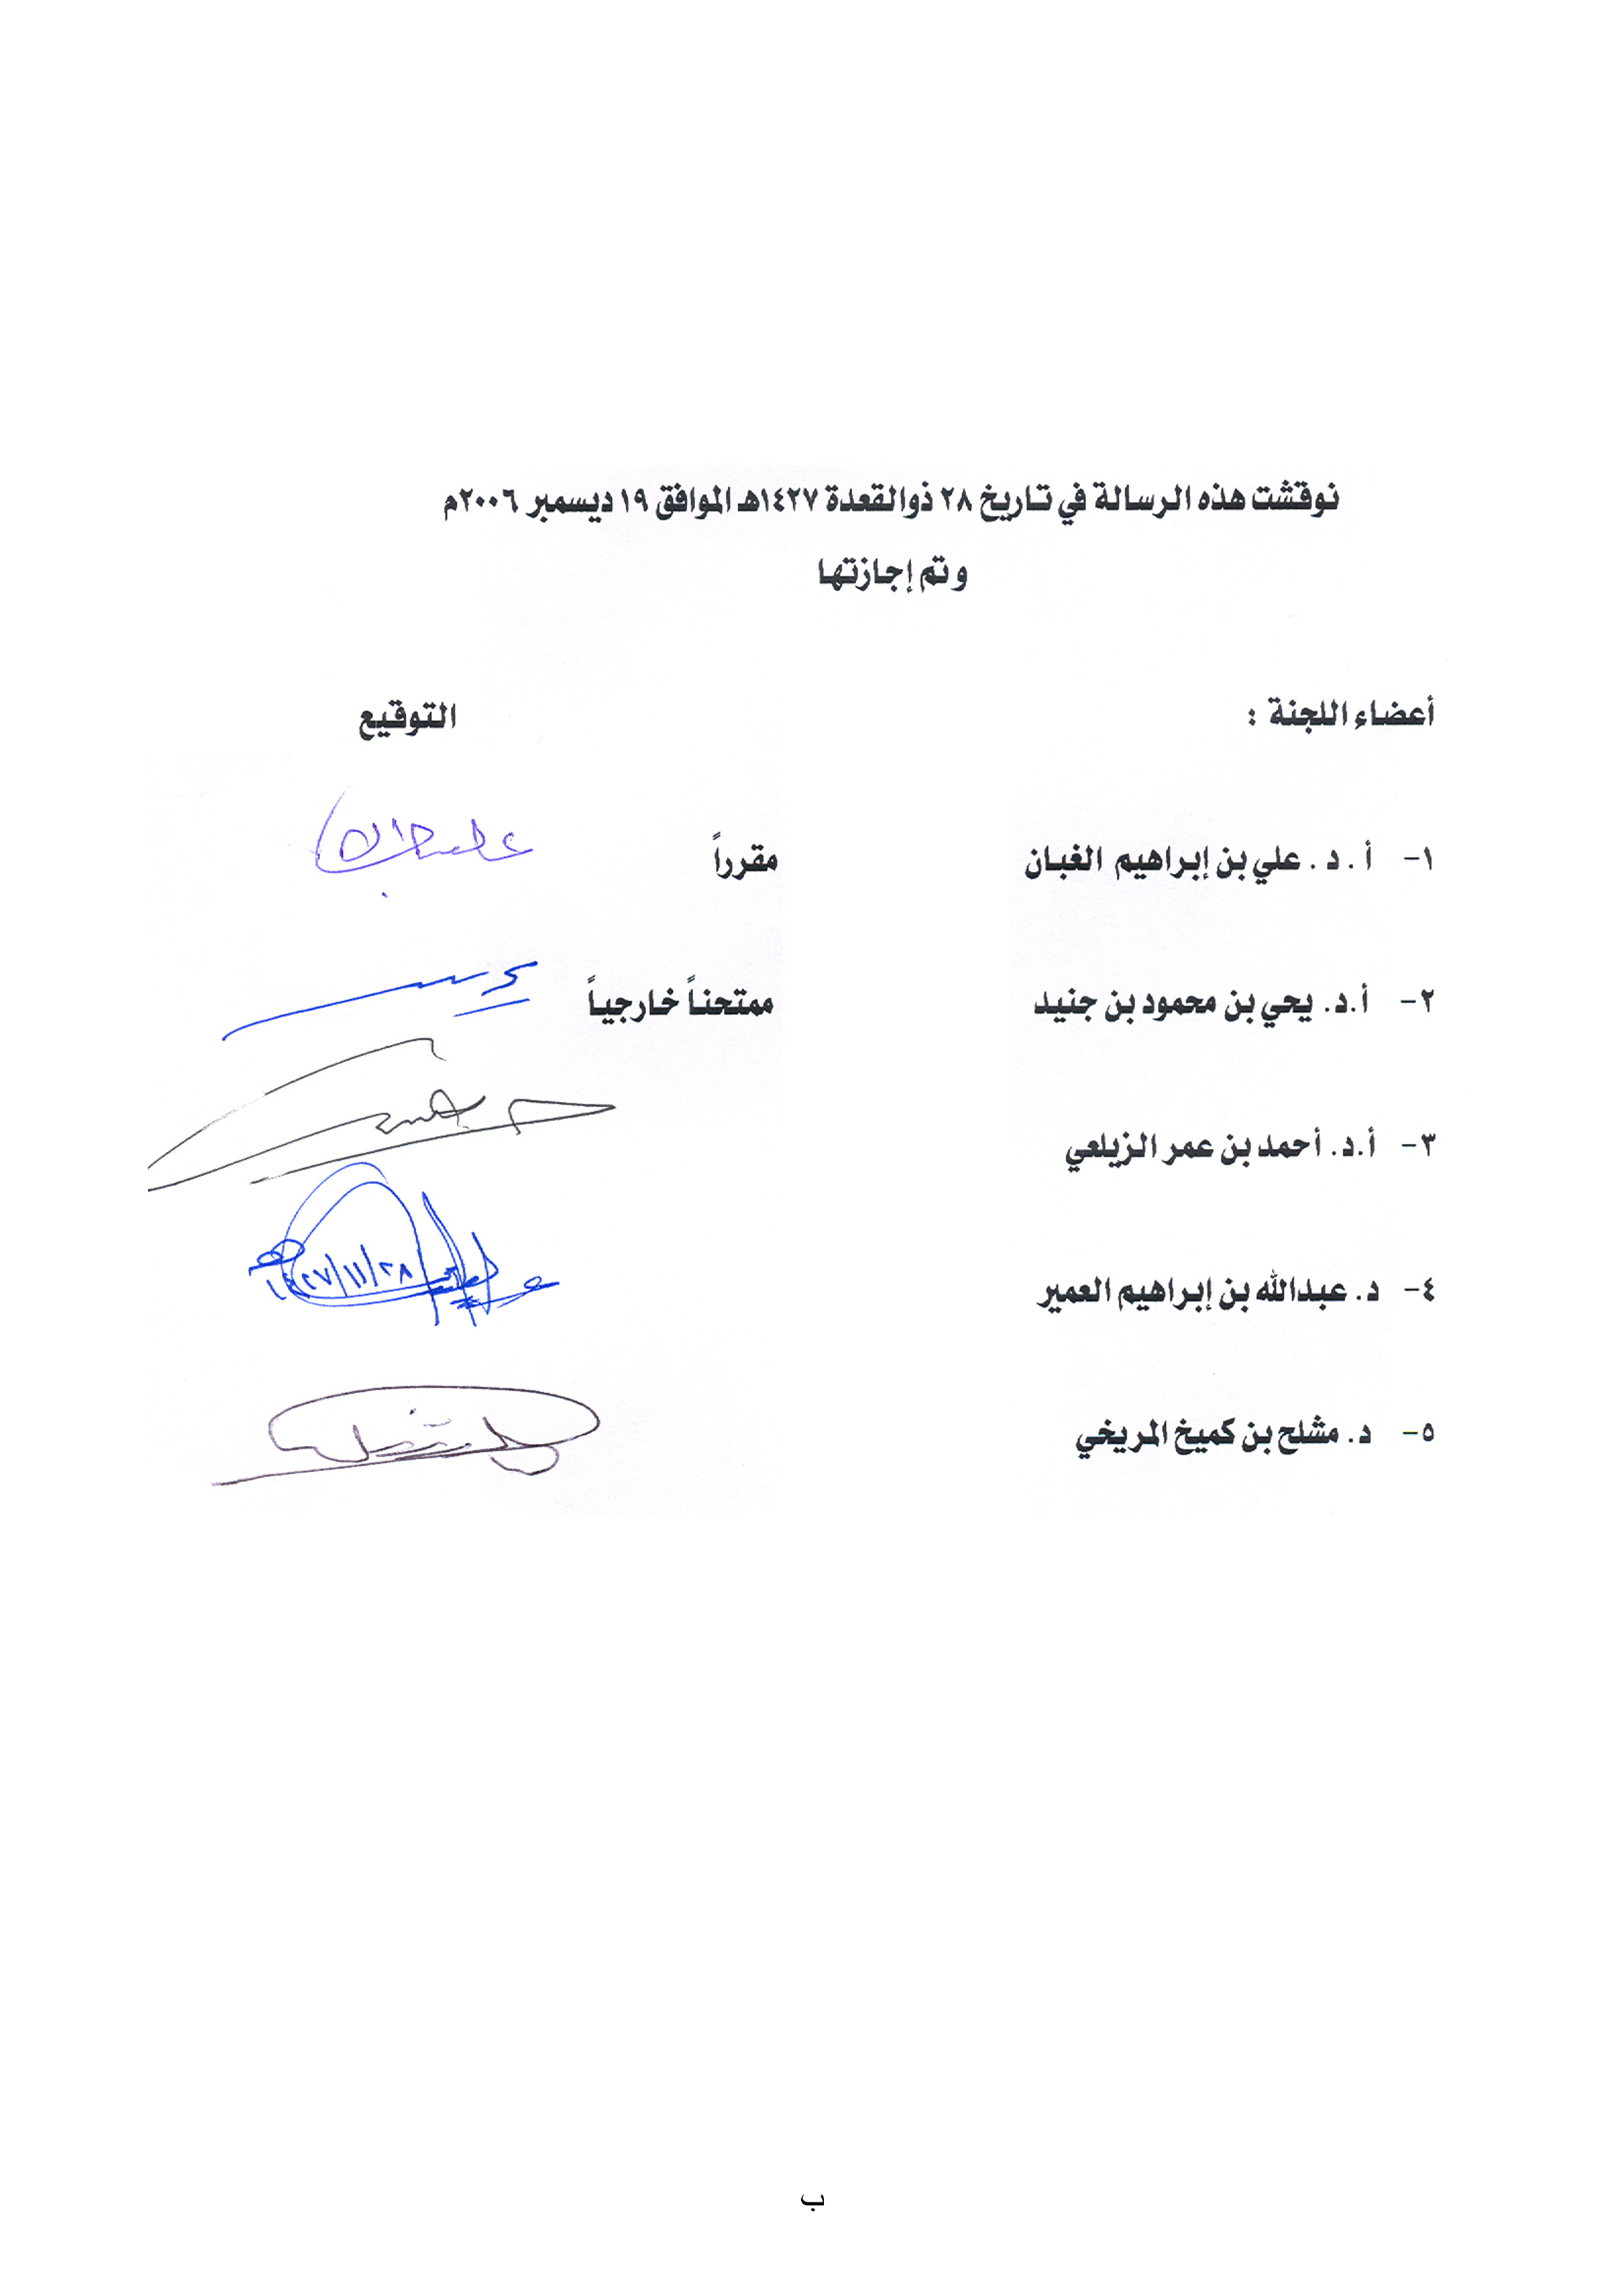 نوقشت هذه الرسالة في تاريخ ٢٨ ذوالقعدة ١٤٢٧هـ الموافق ١٩ ديسمبر ٢٠٠٦م
وتم إجازتها
أعضاء اللجنة : التوقيع
١- أ . د . علي بن إبراهيم الغبان مقرراً
٢- أ.د. يحي بن محمود بن جنيد ممتحناً خارجياً
٣- أ.د. أحمد بن عمر الزيلعي
٤- د. عبدالله بن إبراهيم العمير
١٤٢٧/١١/٢٨هـ
٥- د. مشلح بن كميخ المريخي
ب